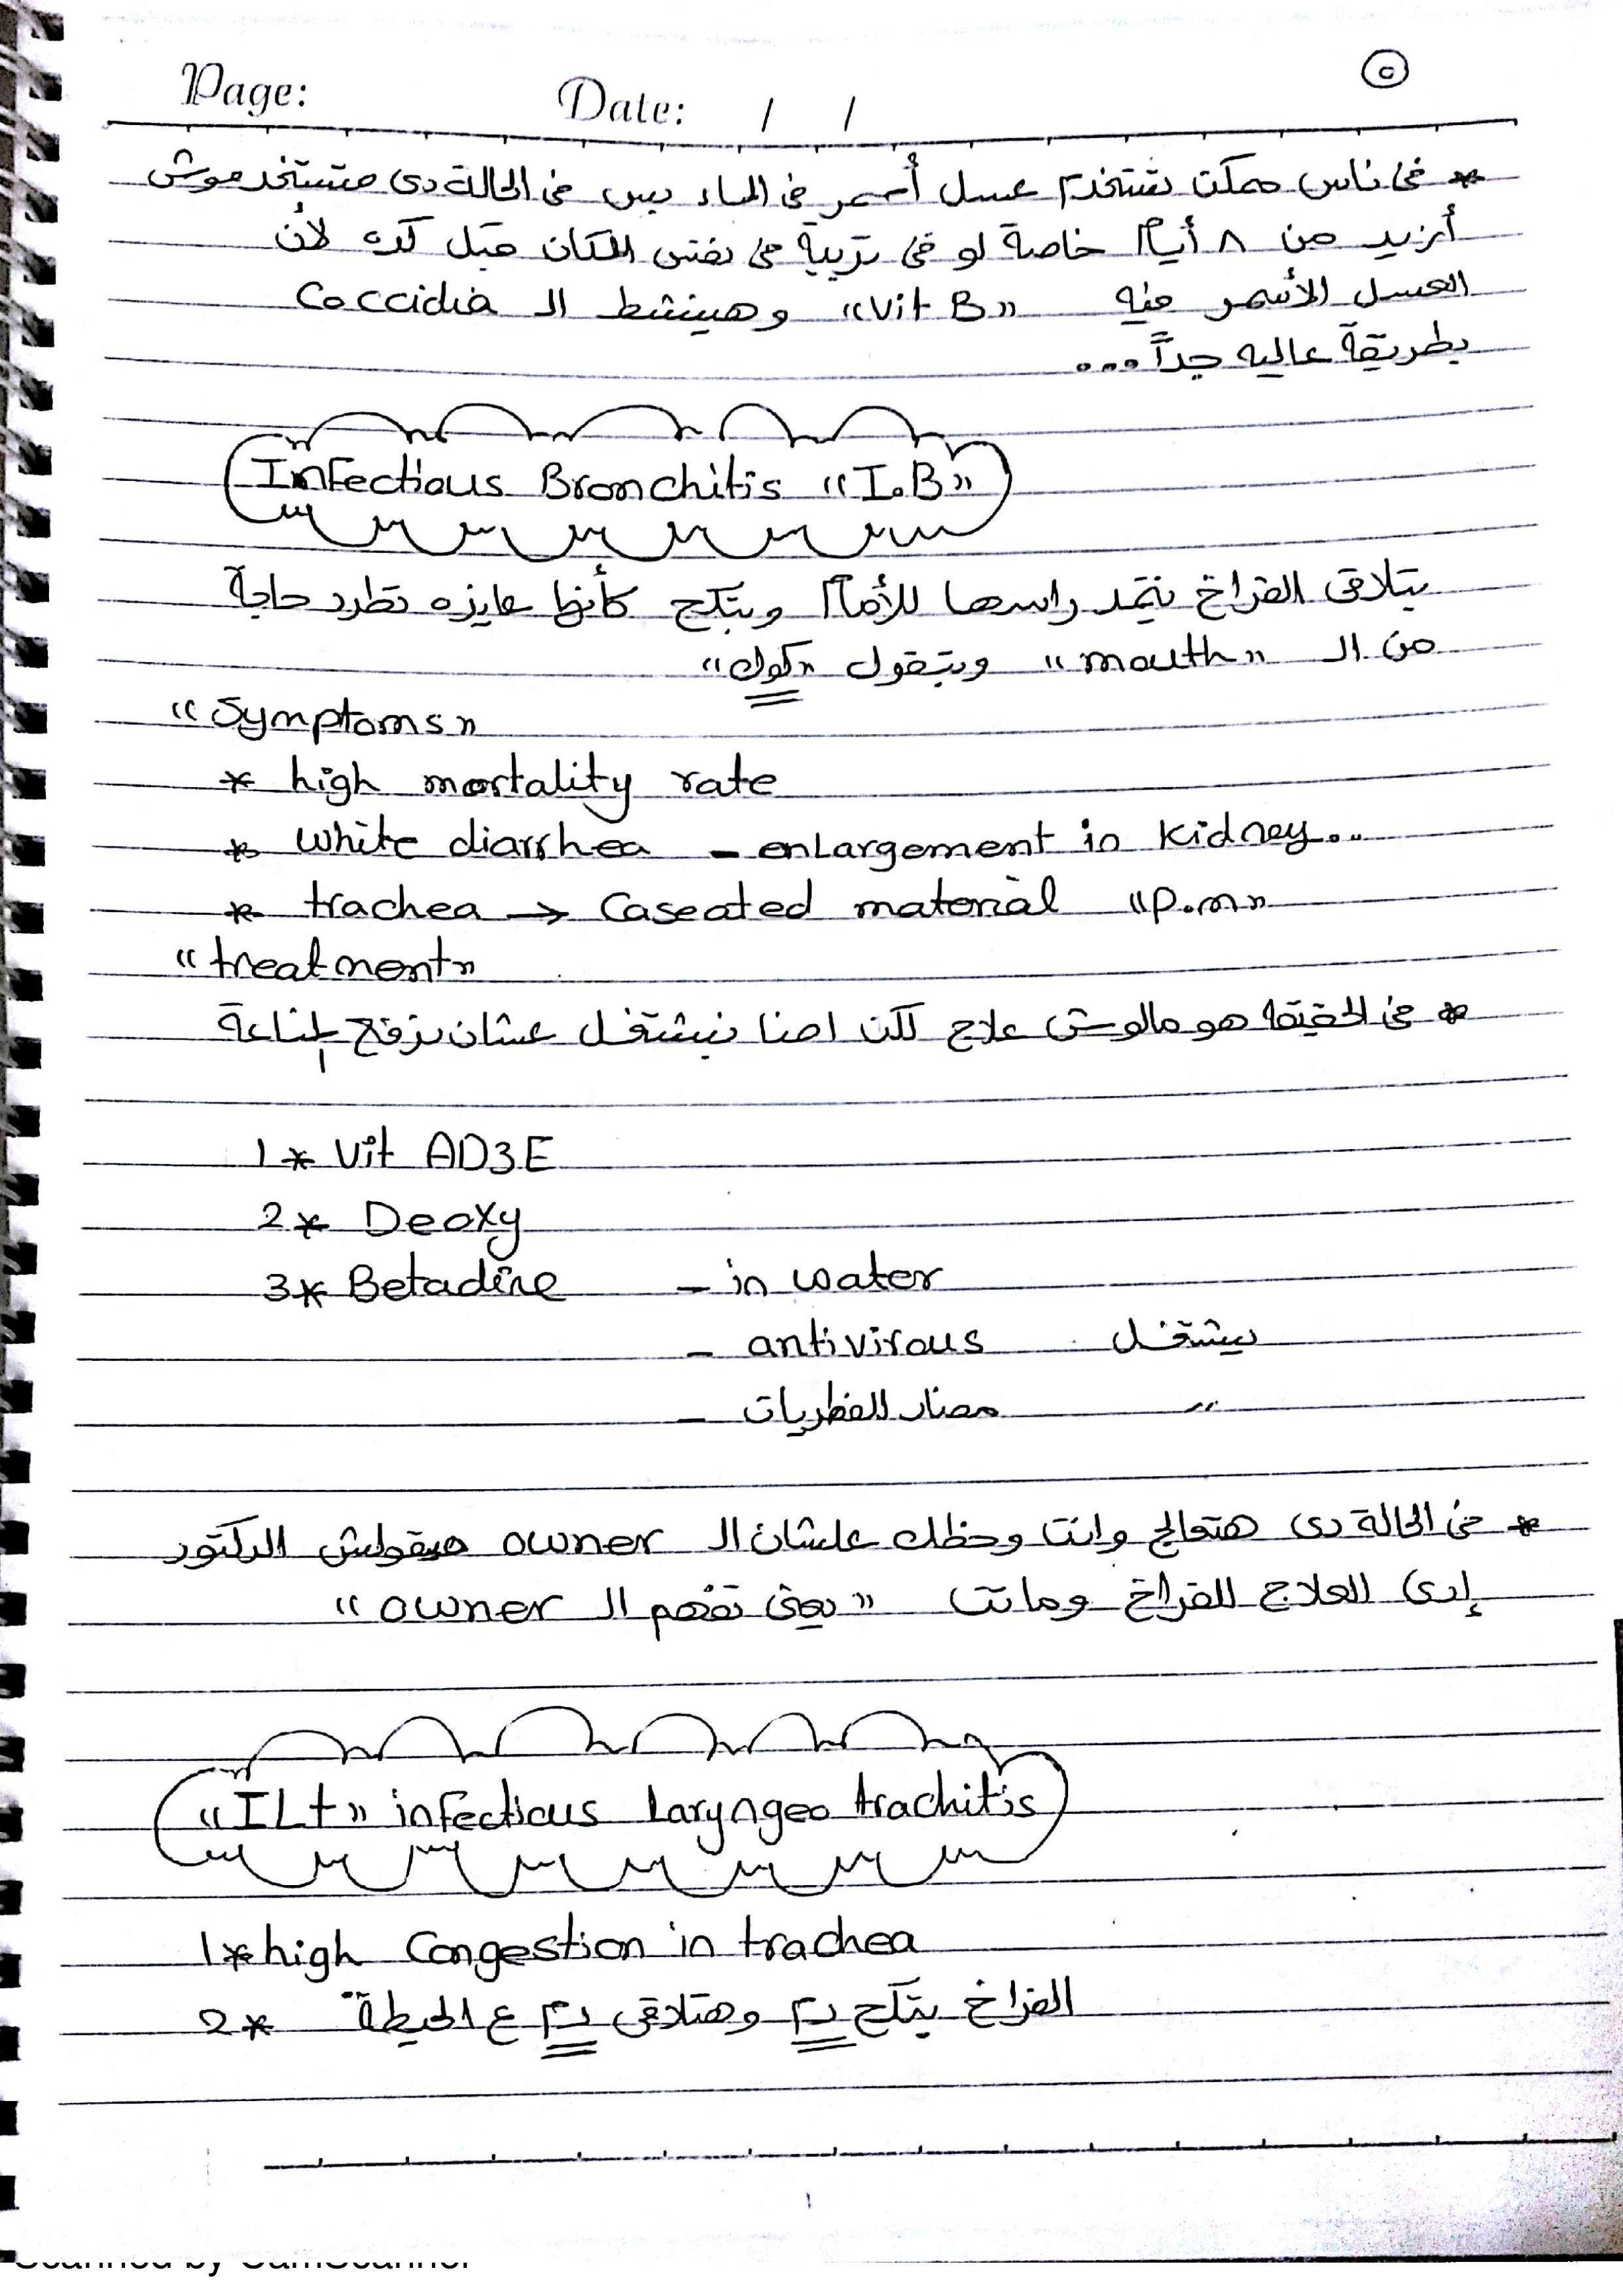 Page: Date: / / ٥
* فى ناس ممكن تستخدم عسل أسمر فى الماء بس فى الحالة دى متستخدموش
أزيد من ٨ أيام خاصة لو فى تربية فى نفس المكان قبل كده لأن
العسل الأسمر فيه "Vit B" وهينشط الـ Coccidia
بطريقة عاليه جداً ...
Infectious Bronchitis "I.B"
بتلاقى الفراخ بتمد راسها للأمام وبتكح كأنها عايزه تطرد حاجة
من الـ "mouth" وبتقول "كوك"
"Symptoms"
* high mortality rate
* white diarrhea - enlargement in kidney..
* trachea → Caseated material "P.m"
"treatment"
* فى الحقيقة هو مالوش علاج لكن احنا بنشتغل عشان نرفع المناعة
1* Vit AD3E
2* Deoxy
3* Betadine - in water
- antivirous بيشتغل
- مضاد للفطريات "
* فى الحالة دى هتعالج وانت وحظك علشان الـ owner ميقولش الدكتور
إدى العلاج للفراخ وماتت "يعنى تفهم الـ owner"
"ILt" infectious Laryngeo trachitis
1* high Congestion in trachea
2* الفراخ بتكح دم وهتلاقى دم ع الحيطة
Scanned by CamScanner